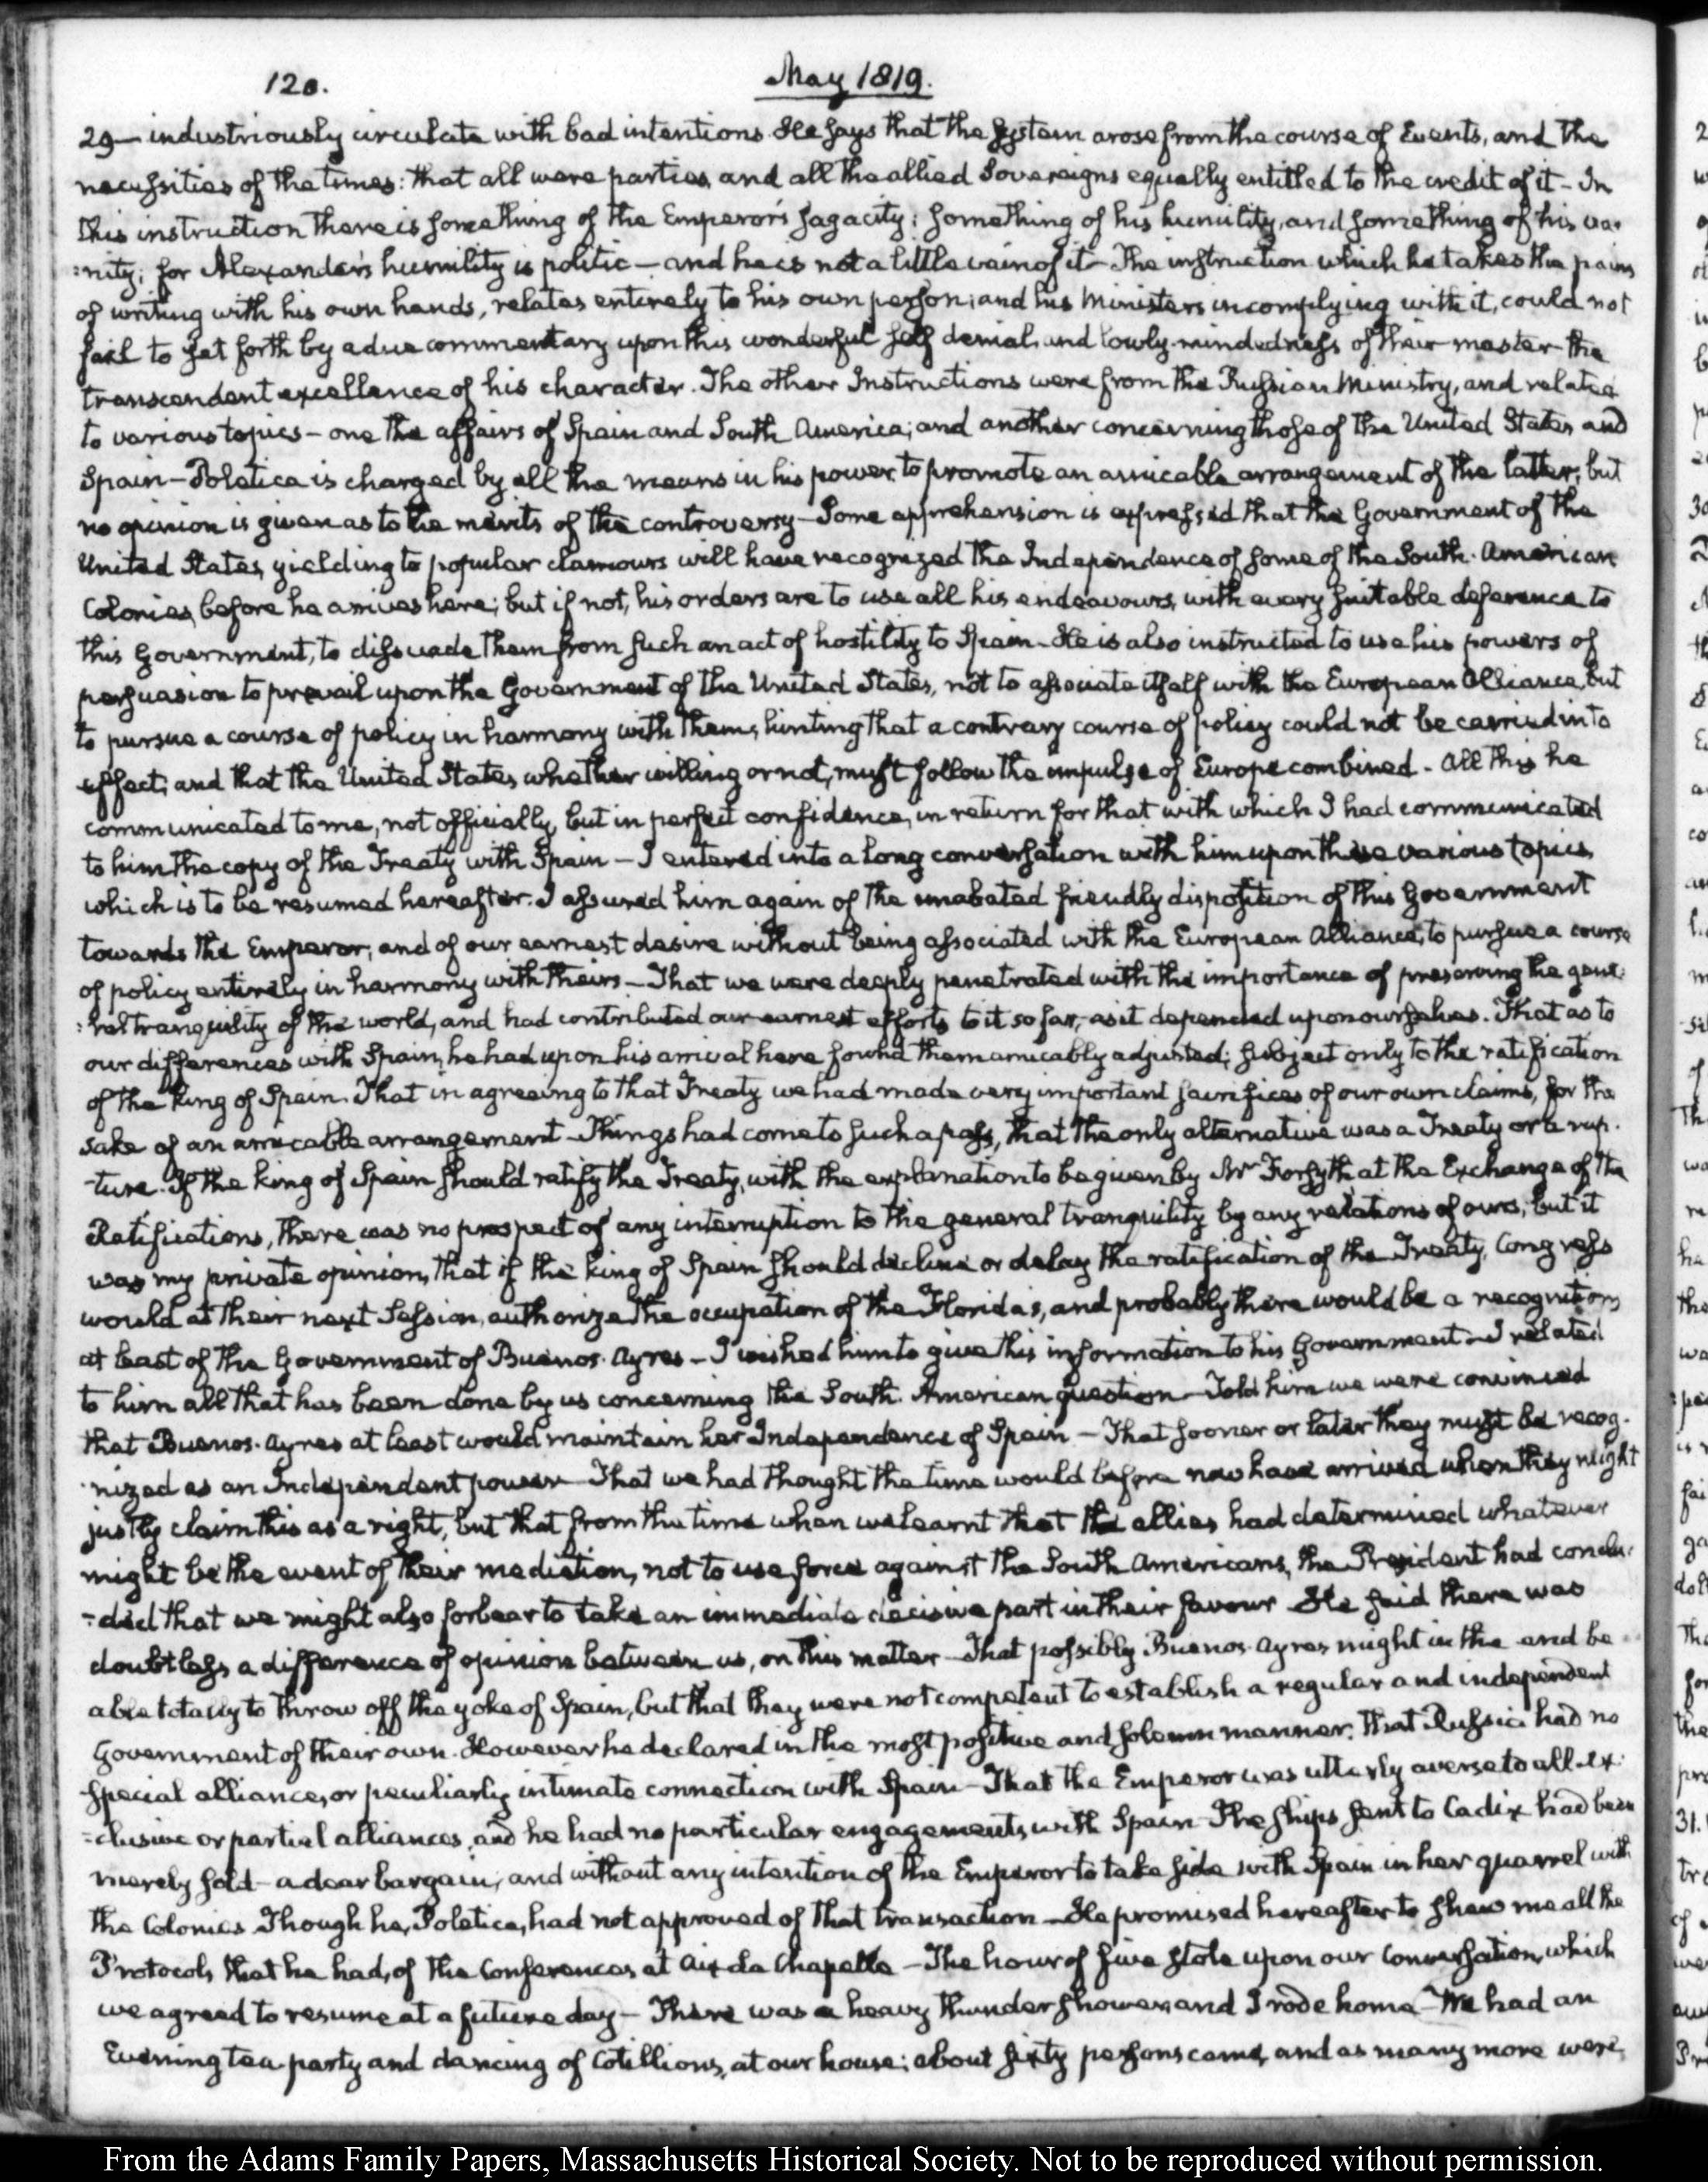 120.
May 1819.
29— industriously circulate with bad intentions. He says that the system arose from the course of Events, and the
necessities of the times: that all were parties, and all the allied Sovereigns equally entitled to the credit of it - In
this instruction there is something of the Emperor's sagacity: something of his humility, and something of his va-
:nity; for Alexander's humility is politic — and he is not a little vain of it - The instruction which he takes the pains
of writing with his own hands, relates entirely to his own person; and his Ministers in complying with it, could not
fail to set forth by a due commentary upon this wonderful self denial, and lowly-mindedness of their master the
transcendent excellence of his character. The other Instructions were from the Russian Ministry, and related
to various topics - one the affairs of Spain and South America; and another concerning those of the United States and
Spain - Poletica is charged by all the means in his power to promote an amicable arrangement of the latter; but
no opinion is given as to the merits of the controversy - Some apprehension is expressed that the Government of the
United States, yielding to popular clamours will have recognized the Independence of some of the South-American
Colonies, before he arrives here; but if not, his orders are to use all his endeavours, with every suitable deference to
this Government, to dissuade them from such an act of hostility to Spain - He is also instructed to use his powers of
persuasion to prevail upon the Government of the United States, not to associate itself with the European Alliance, but
to pursue a course of policy in harmony with them, hinting that a contrary course of policy could not be carried into
effect; and that the United States, whether willing or not, must follow the impulse of Europe combined - All this he
communicated to me, not officially, but in perfect confidence, in return for that with which I had communicated
to him the copy of the Treaty with Spain - I entered into a long conversation with him upon these various topics,
which is to be resumed hereafter. I assured him again of the unabated friendly disposition of this Government
towards the Emperor, and of our earnest desire without being associated with the European Alliance, to pursue a course
of policy entirely in harmony with theirs - That we were deeply penetrated with the importance of preserving the gene-
:ral tranquility of the world, and had contributed our earnest efforts to it so far, as it depended upon ourselves. That as to
our differences with Spain, he had upon his arrival here found them amicably adjusted; subject only to the ratification
of the king of Spain. That in agreeing to that Treaty we had made very important sacrifices of our own claims, for the
sake of an amicable arrangement - Things had come to such a pass, that the only alternative was a Treaty or a rup-
-ture. If the king of Spain should ratify the Treaty, with the explanation to be given by Mr Forsyth at the Exchange of the
Ratifications, there was no prospect of any interruption to the general tranquility by any relations of ours, but it
was my private opinion, that if the king of Spain should decline or delay the ratification of the Treaty, Congress
would at their next Session, authorize the occupation of the Floridas, and probably there would be a recognition
at least of the Government of Buenos-Ayres - I wished him to give this information to his Government - I related
to him all that has been done by us concerning the South-American question - Told him we were convinced
that Buenos-Ayres at least would maintain her Independence of Spain - That sooner or later they must be recog-
-nized as an Independent power - That we had thought the time would before now have arrived when they might
justly claim this as a right, but that from the time when we learnt that the allies had determined whatever
might be the event of their mediation, not to use force against the South Americans, the President had conclu-
-ded that we might also forbear to take an immediate decisive part in their favour - He said there was
doubtless a difference of opinion between us, on this matter - That possibly Buenos-Ayres might in the end be
able totally to throw off the yoke of Spain, but that they were not competent to establish a regular and independent
Government of their own. However he declared in the most positive and solemn manner, that Russia had no
special alliance, or peculiarly intimate connection with Spain - That the Emperor was utterly averse to all ex-
-clusive or partial alliances, and he had no particular engagements with Spain - The ships sent to Cadix had been
merely sold - a dear bargain; and without any intention of the Emperor to take side with Spain in her quarrel with
the Colonies. Though he, Poletica, had not approved of that transaction - He promised hereafter to shew me all the
Protocols that he had, of the Conferences at Aix la Chapelle - The hour of five stole upon our Conversation, which
we agreed to resume at a future day - There was a heavy thunder shower, and I rode home - We had an
Evening tea-party and dancing of Cotillions, at our house; about sixty persons came, and as many more were,
From the Adams Family Papers, Massachusetts Historical Society. Not to be reproduced without permission.